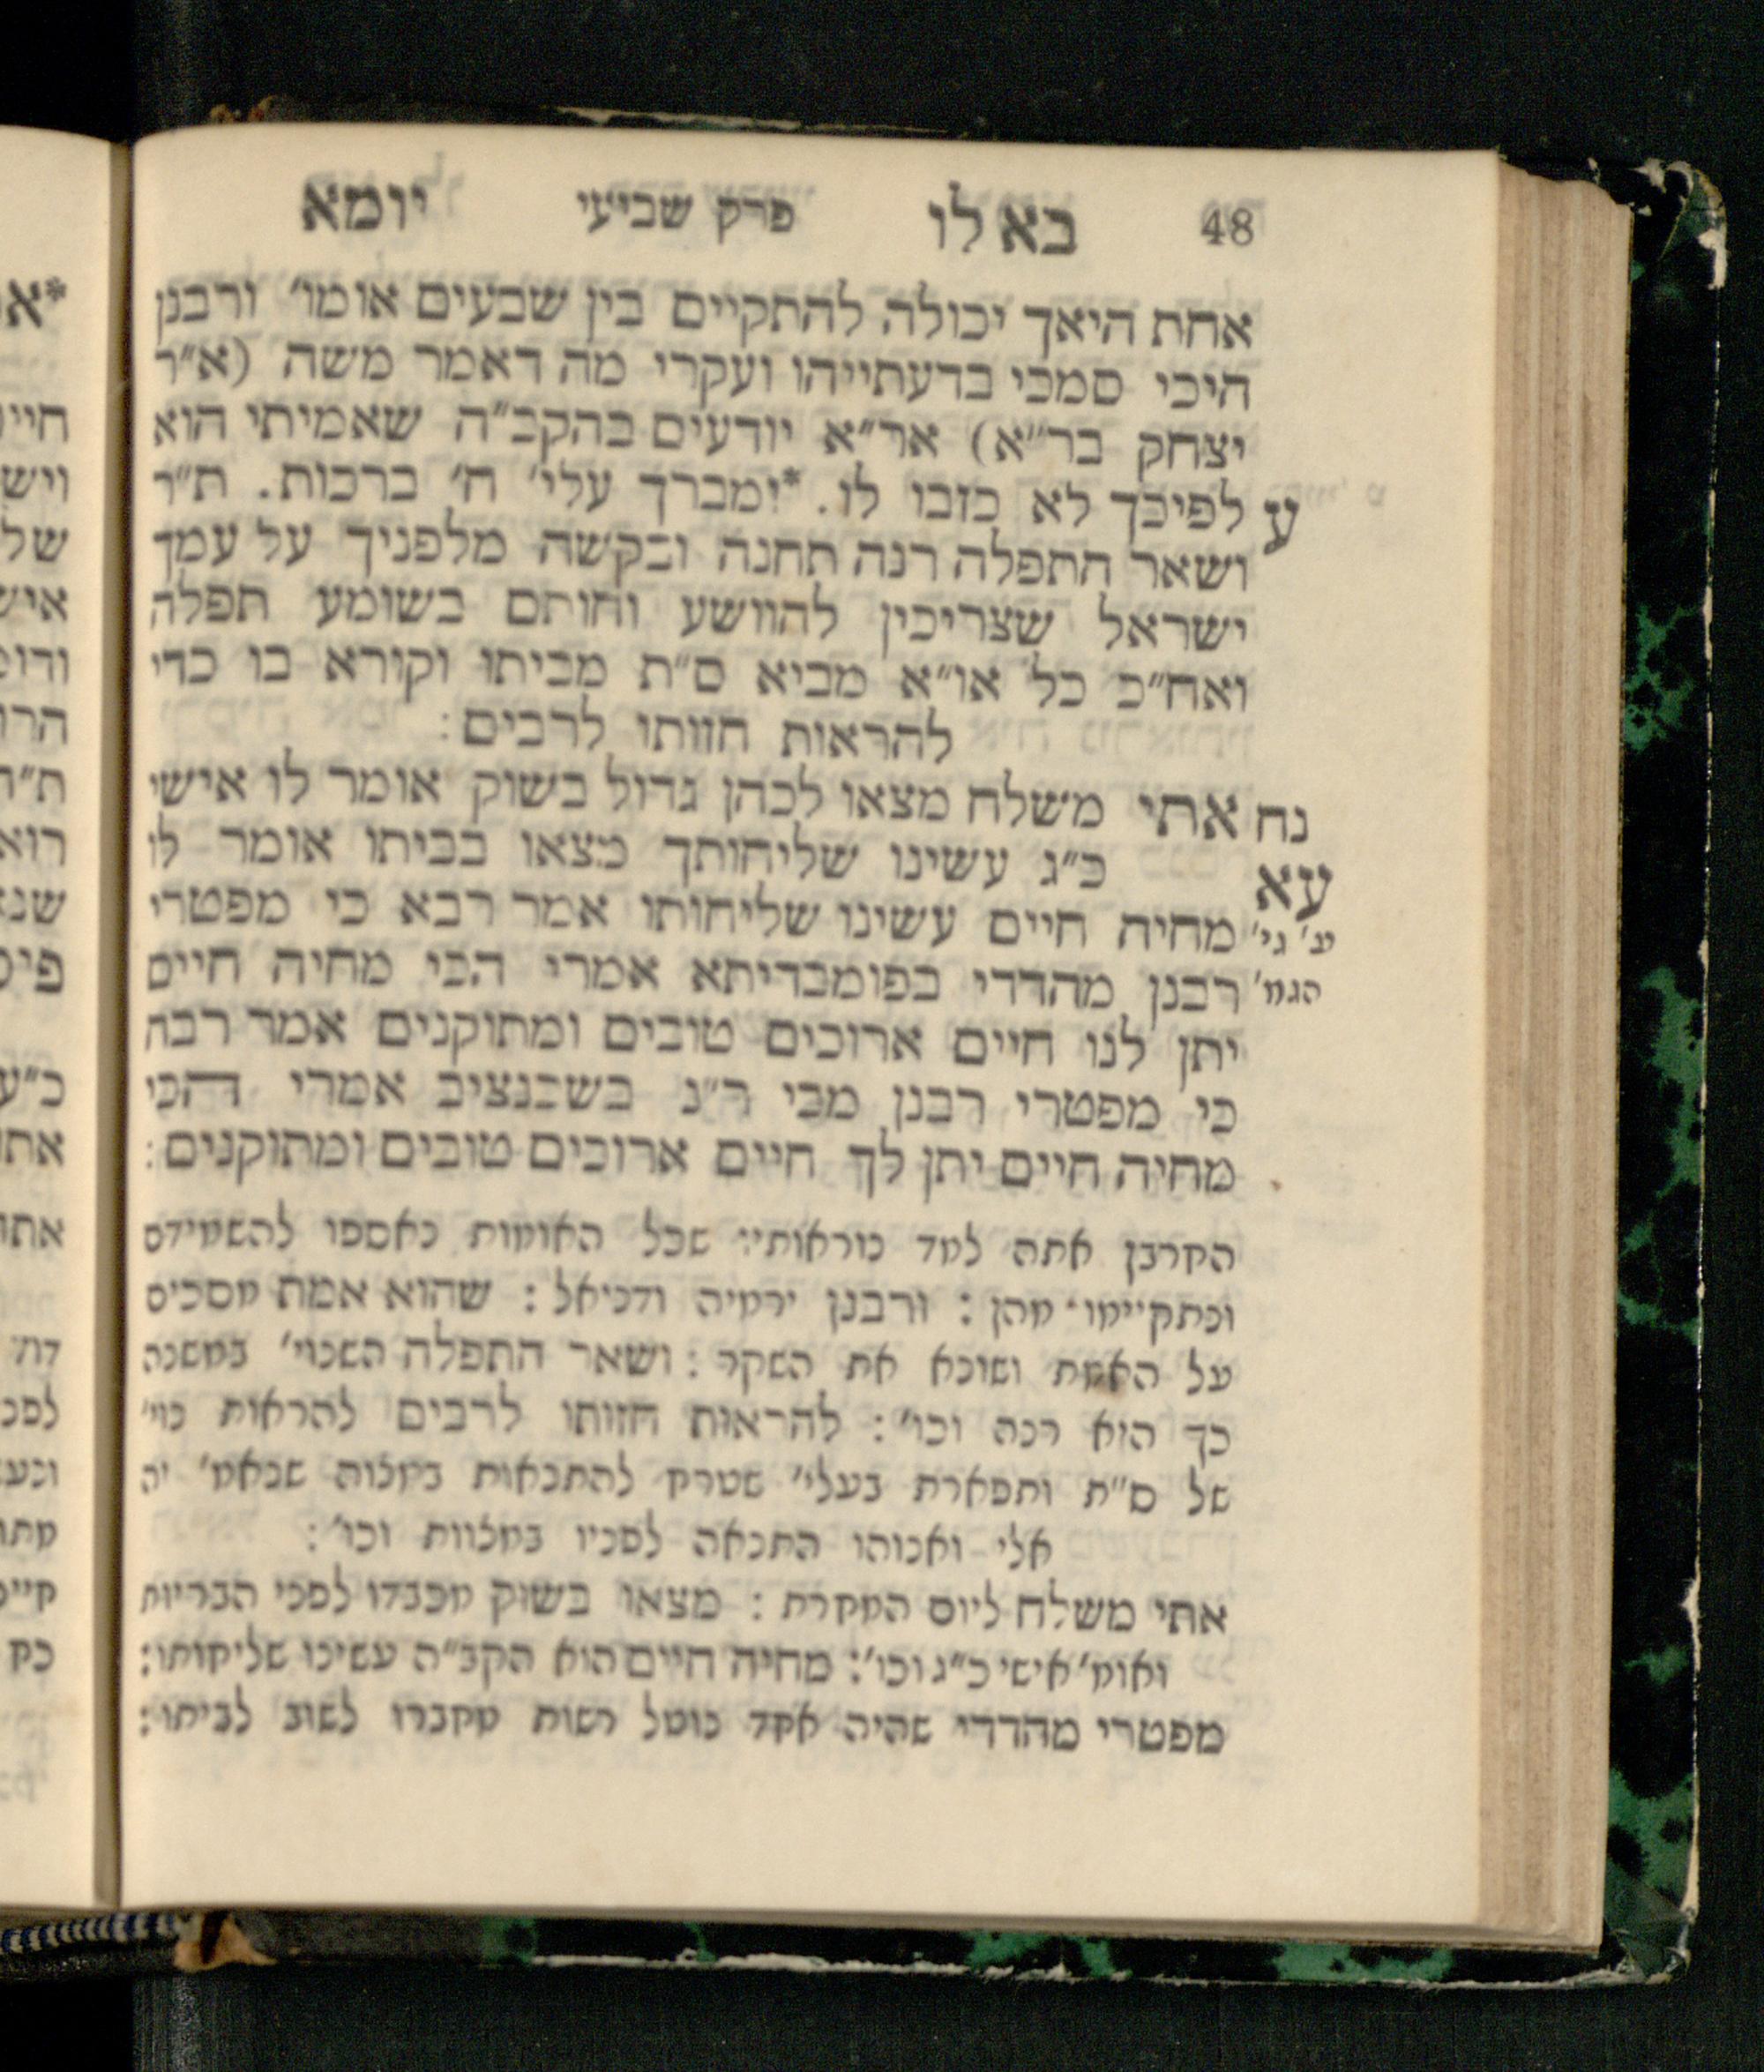 48 בא לו פרק שביעי יומא
אחת היאך יכולה להתקיים בין שבעים אומו׳ ורבנן
היכי סמכי בדעתייהו ועקרי מה דאמר משה (א״ר
יצחק בר״א) אר״א יודעים בהקב״ה שאמיתי הוא
ע לפיכך לא כזבו לו. *ומברך עלי׳ ח׳ ברכות. ת״ר
ושאר התפלה רנה תחנה ובקשה מלפניך על עמך
ישראל שצריכין להוושע וחותם בשומע תפלה
ואח״כ כל או״א מביא ס״ת מביתו וקורא בו כדי
להראות חזותו לרבים:
נח אתי משלח מצאו לכהן גדול בשוק אומר לו אישי
עא כ״ג עשינו שליחותך מצאו בביתו אומר לו
ע׳ גי׳ מחיה חיים עשינו שליחותו אמר רבא כי מפטרי
הגמ׳ רבנן מהדדי בפומבדיתא אמרי הכי מחיה חיים
יתן לנו חיים ארוכים טובים ומתוקנים אמר רבה
כי מפטרי רבנן מבי ר״נ בשכנציב אמרי דהכי
מחיה חיים יתן לך חיים ארוכים טובים ומתוקנים:
החרבן אתה למד נוראותיו שכל האומות נאספו להשמידם
ונתקיימו מהן: ורבנן ירמיה ודניאל: שהוא אמת מסכים
על האמת ושונא את השקר: ושאר התפלה השנוי׳ במשנה
כך היא רנה וכו׳: להראות חזותו לרבים להראות נוי׳
של ס״ת ותפארת בעלי׳ שטרח להתנאות במצוה שנאמ׳ זה
אלי ואנוהו התנאה לפניו במצוות וכו׳:
אתי משלח ליום המחרת: מצאו בשוק מכבדו לפני הבריות
ואומ׳ אישי כ״ג וכו׳: מחיה חיים הוא הקב״ה עשינו שליחותו:
מפטרי מהדדי שהיה אחד נוטל רשות מחברו לשוב לביתו: